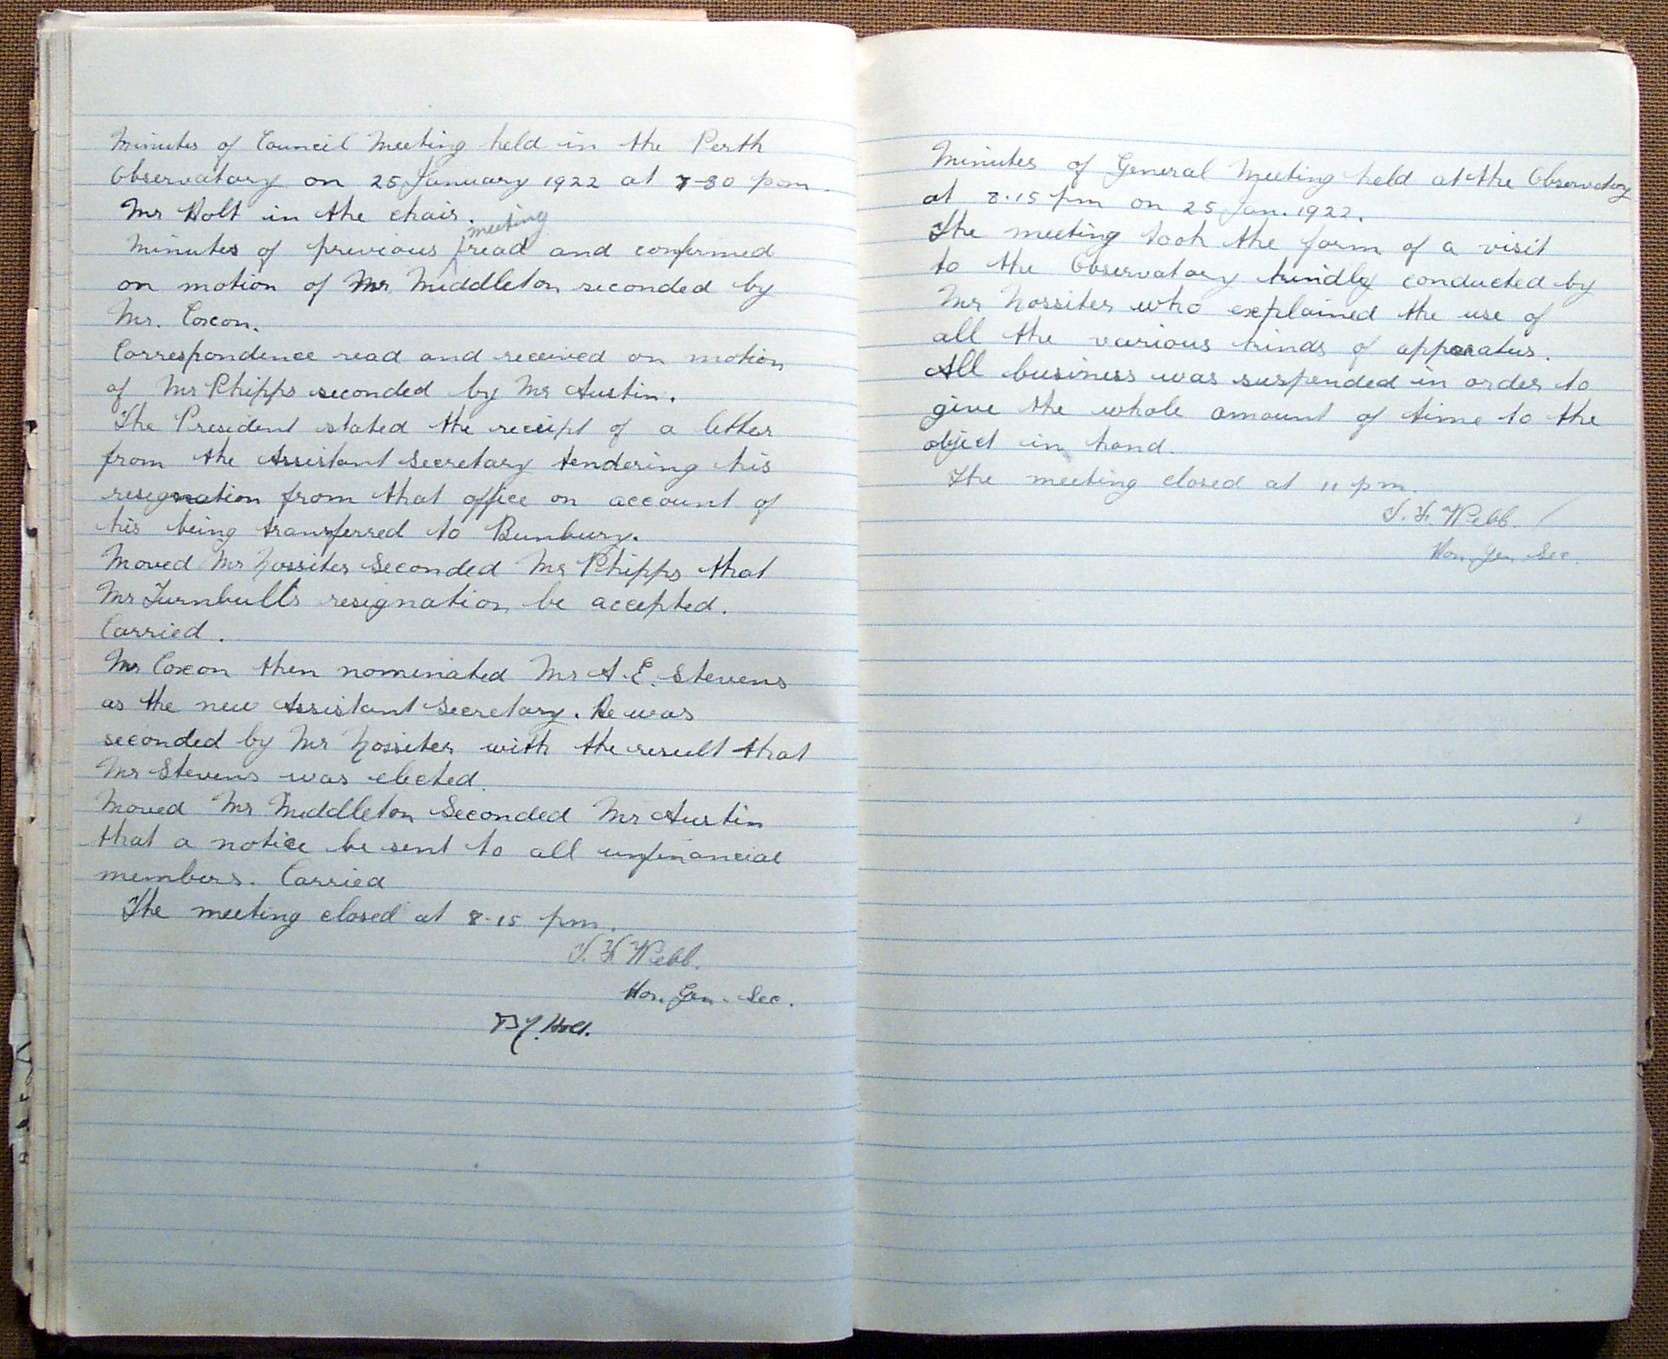 Minutes of Council Meeting held in the Perth
Observatory on 25 January 1922 at 7-30 pm.
Mr Holt in the chair.
meeting
Minutes of previous read and confirmed
on motion of Mr Middleton seconded by
Mr. Coxon.
Correspondence read and received on motion
of Mr Phipps seconded by Mr Austin.
The President stated the receipt of a letter
from the Assistant Secretary tendering his
resignation from that office on account of
his being transferred to Bunbury.
Moved Mr Nossiter Seconded Mr Phipps that
Mr Turnbull's resignation be accepted.
Carried.
Mr Coxon then nominated Mr A. E. Stevens
as the new Assistant Secretary. He was
seconded by Mr Nossiter with the result that
Mr Stevens was elected.
Moved Mr Middleton Seconded Mr Austin
that a notice be sent to all unfinancial
members. Carried
The meeting closed at 8-15 pm.
Webb.
Hon. Gen. Sec.
Holt.
Minutes of General Meeting held at the Observatory
at 8.15 pm on 25 Jan. 1922.
The meeting took the form of a visit
to the Observatory kindly conducted by
Mr Nossiter who explained the use of
all the various kinds of apparatus.
All business was suspended in order to
give the whole amount of time to the
object in hand.
The meeting closed at 11 pm.
Webb.
Hon. Gen. Sec.